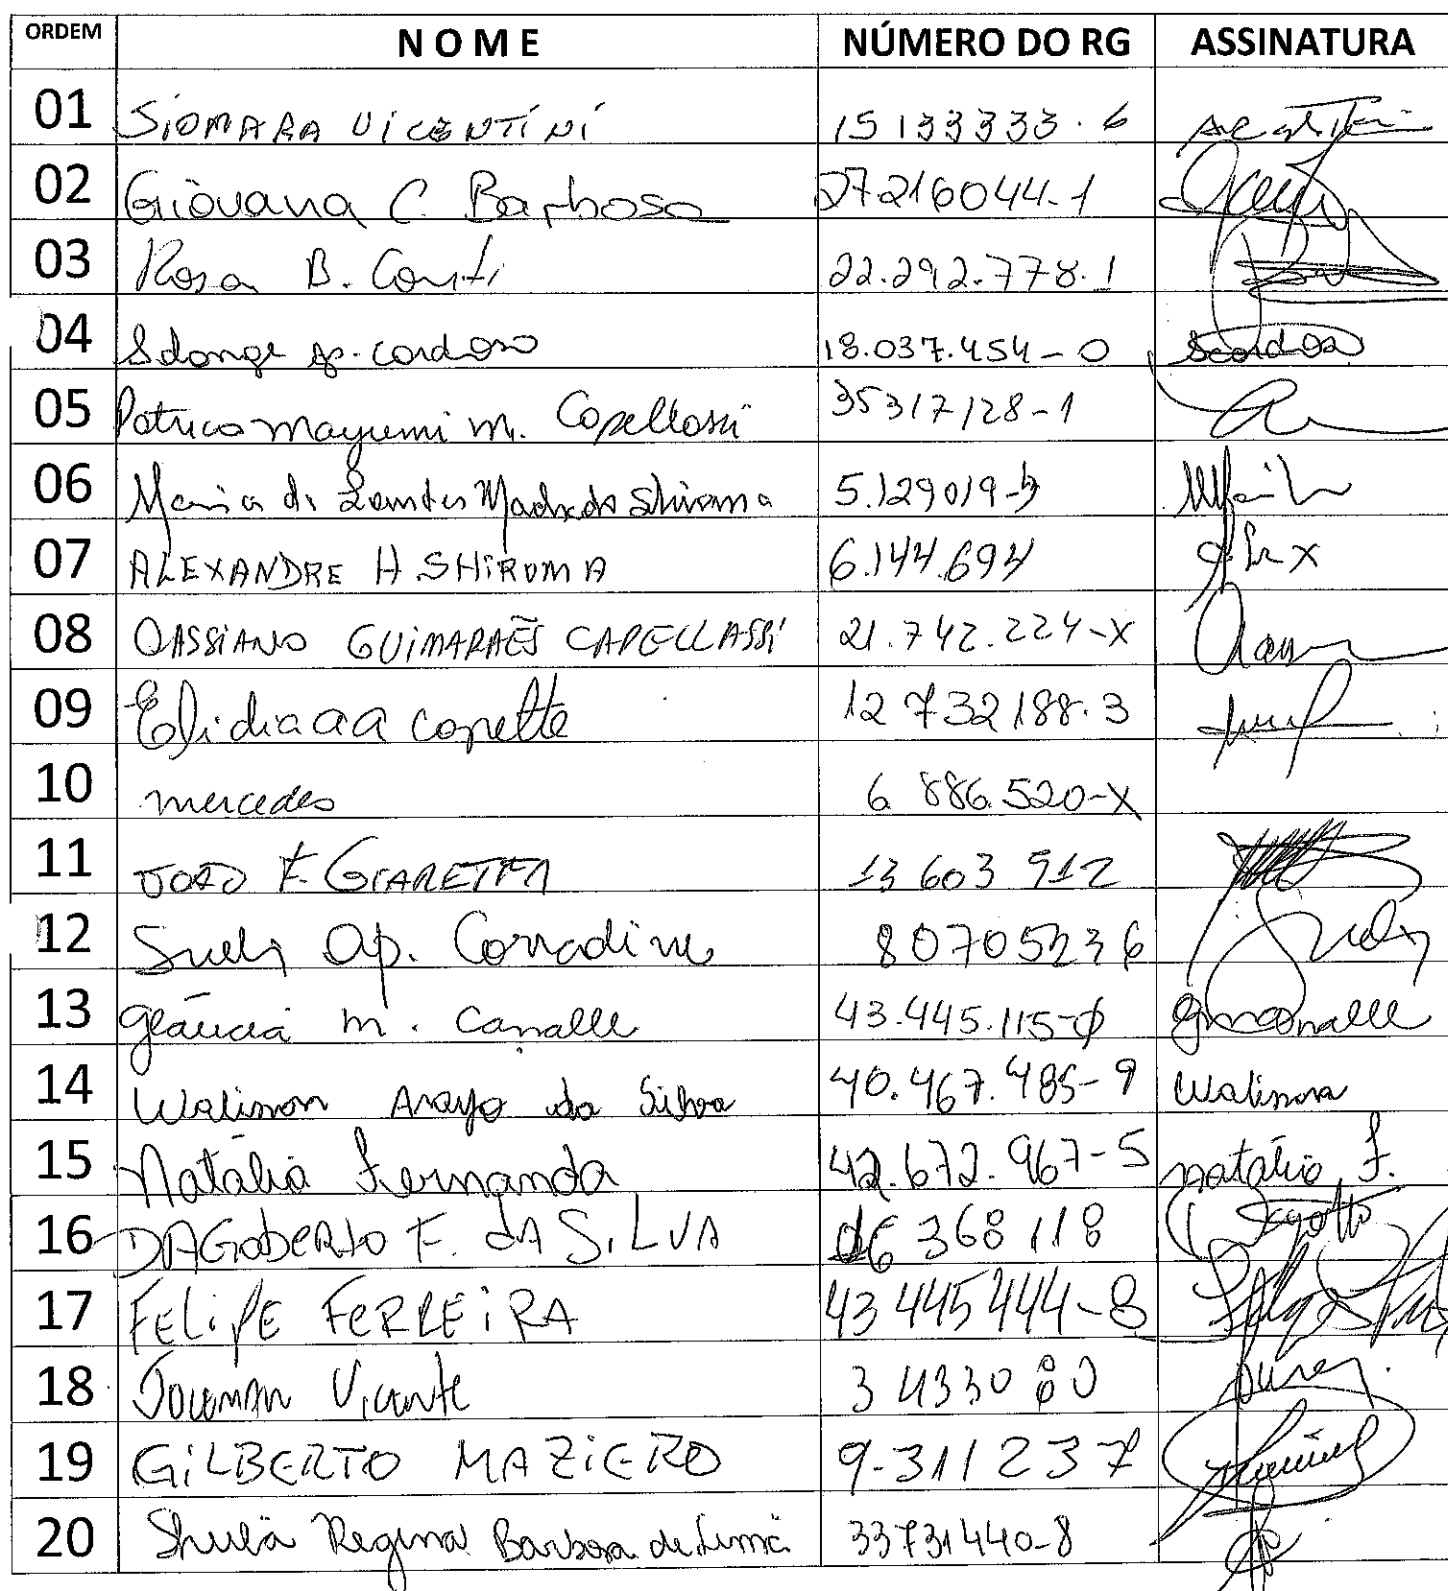 ORDEM NOME NÚMERO DO RG ASSINATURA
01 SIOMARA VICENTINI 15 133333.6
02 Giovana C. Barbosa 27216044-1
03 Rosa B. Conti 22.292.778.1
04 Solange Ap. Cardoso 18.037.454-0 Scardoso
05 Patricia Mayumi M. Capellassi 35317128-1
06 Maria de Lourdes Machado Shiroma 5.129019-
07 ALEXANDRE H SHIROMA 6.144.694
08 CASSIANO GUIMARAES CAPELLASSI 21.742.224-X
09 Elidia a a 12 732188.3
10 mercedes 6 886.520-X
11 JOAO F. GIARETTA 13 603 912
12 Sueli Ap. Corradine 8070523 6 Sueli
13 Gláucia M. Canalle 43.445.115-0 Gmcanalle
14 Walisson Araujo da Silva 40.467.485-9 Walisson
15 Natália Fernanda 42.672.967-5 Natália F.
16 DAGOBERTO F. dA SILVA 368 118
17 FELIPE FERREIRA 43 445444-8
18 Vicente
19 GILBERTO MAZIERO 9-311237
20 Regina Barbosa de Lima 33731440-8